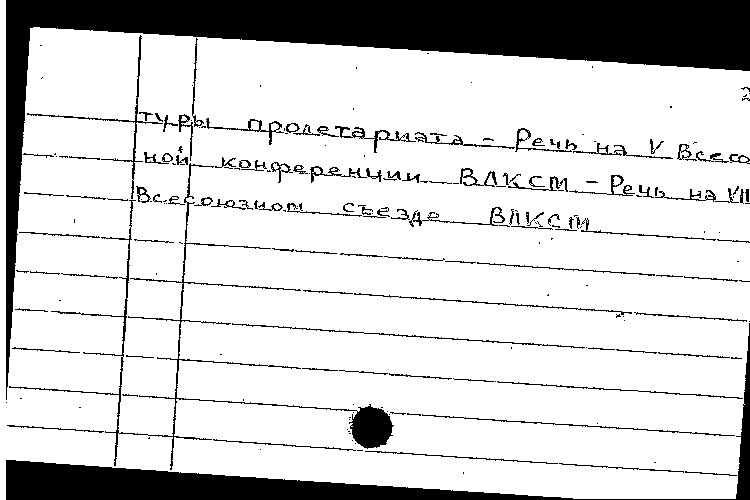 2
туры пролетариата – Речь на V Всесо
ной конференции ВЛКСМ – Речь на VII
Всесоюзном съезде ВЛКСМ